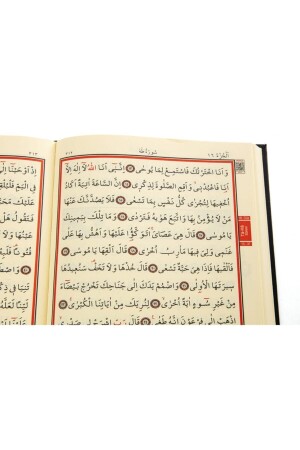 الجزء ١٦
سورة طه
٣١٢
وَاَنَا اخْتَرْتُكَ فَاسْتَمِعْ لِمَا يُوحٰى اِنَّنٖٓي اَنَا اللّٰهُ لَٓا اِلٰهَ اِلَّٓا
اَنَا فَاعْبُدْنٖي وَاَقِمِ الصَّلٰوةَ لِذِكْرٖي اِنَّ السَّاعَةَ اٰتِيَةٌ اَكَادُ
اُخْفٖيهَا لِتُجْزٰى كُلُّ نَفْسٍ بِمَا تَسْعٰى فَلَا يَصُدَّنَّكَ عَنْهَا
مَنْ لَا يُؤْمِنُ بِهَا وَاتَّبَعَ هَوٰيهُ فَتَرْدٰى وَمَا تِلْكَ بِيَمٖينِكَ
يَا مُوسٰى قَالَ هِيَ عَصَايَ اَتَوَكَّؤُا عَلَيْهَا وَاَهُشُّ بِهَا عَلٰى
غَنَمٖي وَلِيَ فٖيهَا مَاٰرِبُ اُخْرٰى قَالَ اَلْقِهَا يَا مُوسٰى
فَاَلْقٰيهَا فَاِذَا هِيَ حَيَّةٌ تَسْعٰى قَالَ خُذْهَا وَلَا تَخَفْ سَنُعٖيدُهَا
سٖيرَتَهَا الْاُولٰى وَاضْمُمْ يَدَكَ اِلٰى جَنَاحِكَ تَخْرُجْ بَيْضَٓاءَ
مِنْ غَيْرِ سُٓوءٍ اٰيَةً اُخْرٰى لِنُرِيَكَ مِنْ اٰيَاتِنَا الْكُبْرٰى
اِذْهَبْ اِلٰى فِرْعَوْنَ اِنَّهُ طَغٰى قَالَ رَبِّ اشْرَحْ لٖي صَدْرٖي
٣١٣
اِذْ اَوْحَيْنَٓا اِلٰٓى
فِي الْيَمِّ فَلْيُلْقِهِ
عَلَيْكَ مَحَبَّةً
فَتَقُولُ هَلْ
عَيْنُهَا وَلَا
فُتُونًا فَلَبِثْتَ